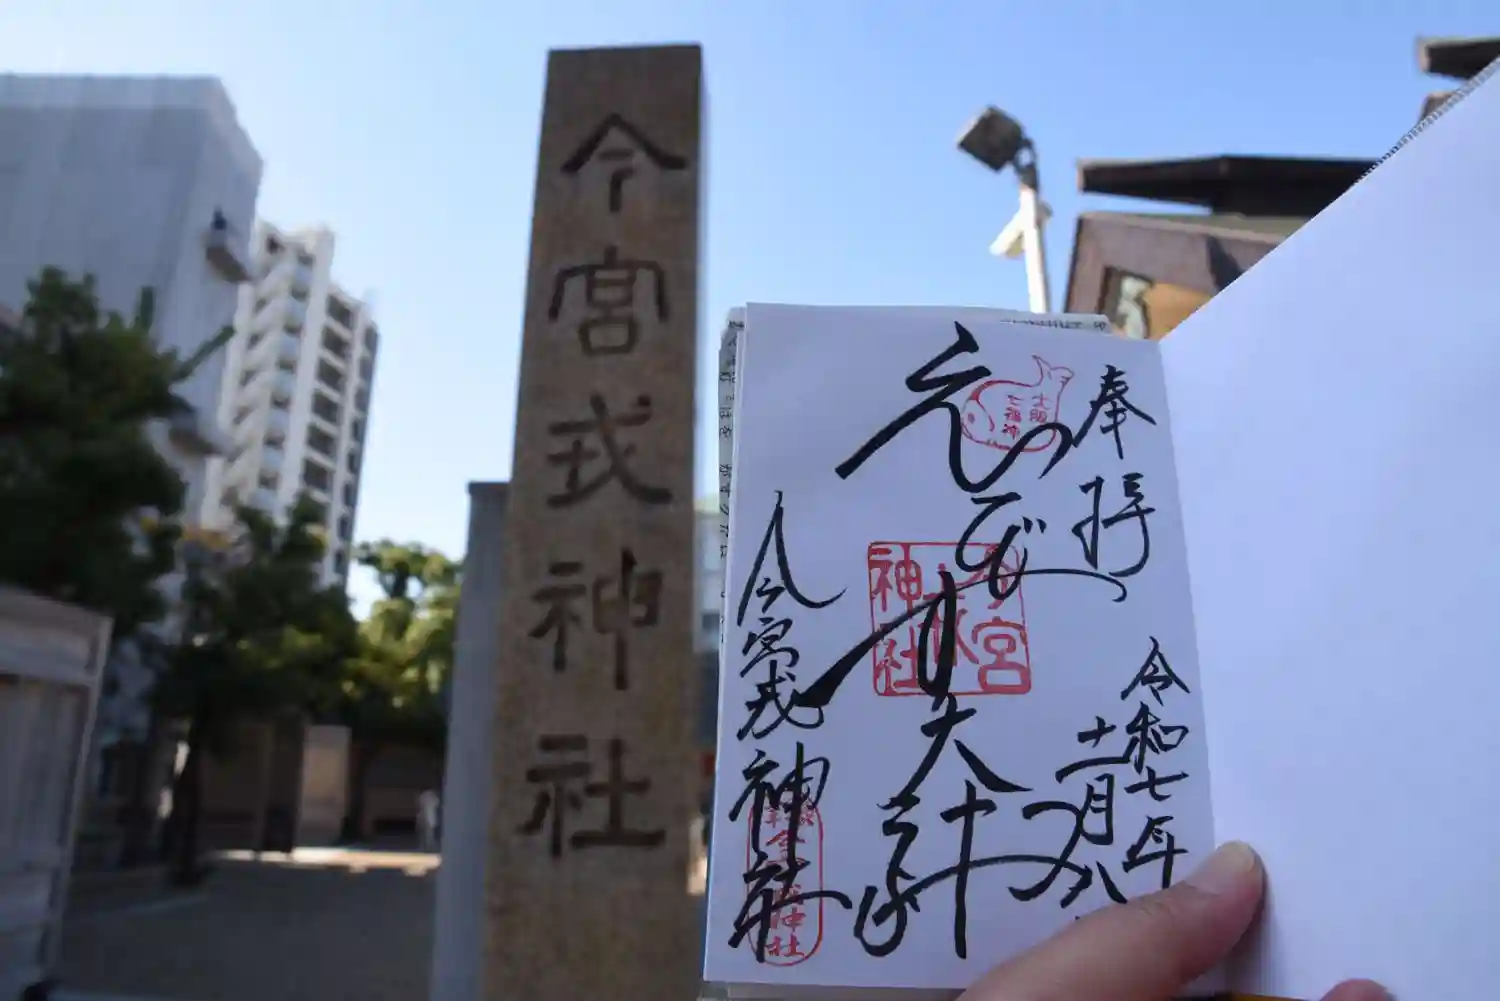 今宮戎神社
奉拝
令和七年
十一月八
大阪
七福神
えびす大神
今宮
神社
今宮戎神社